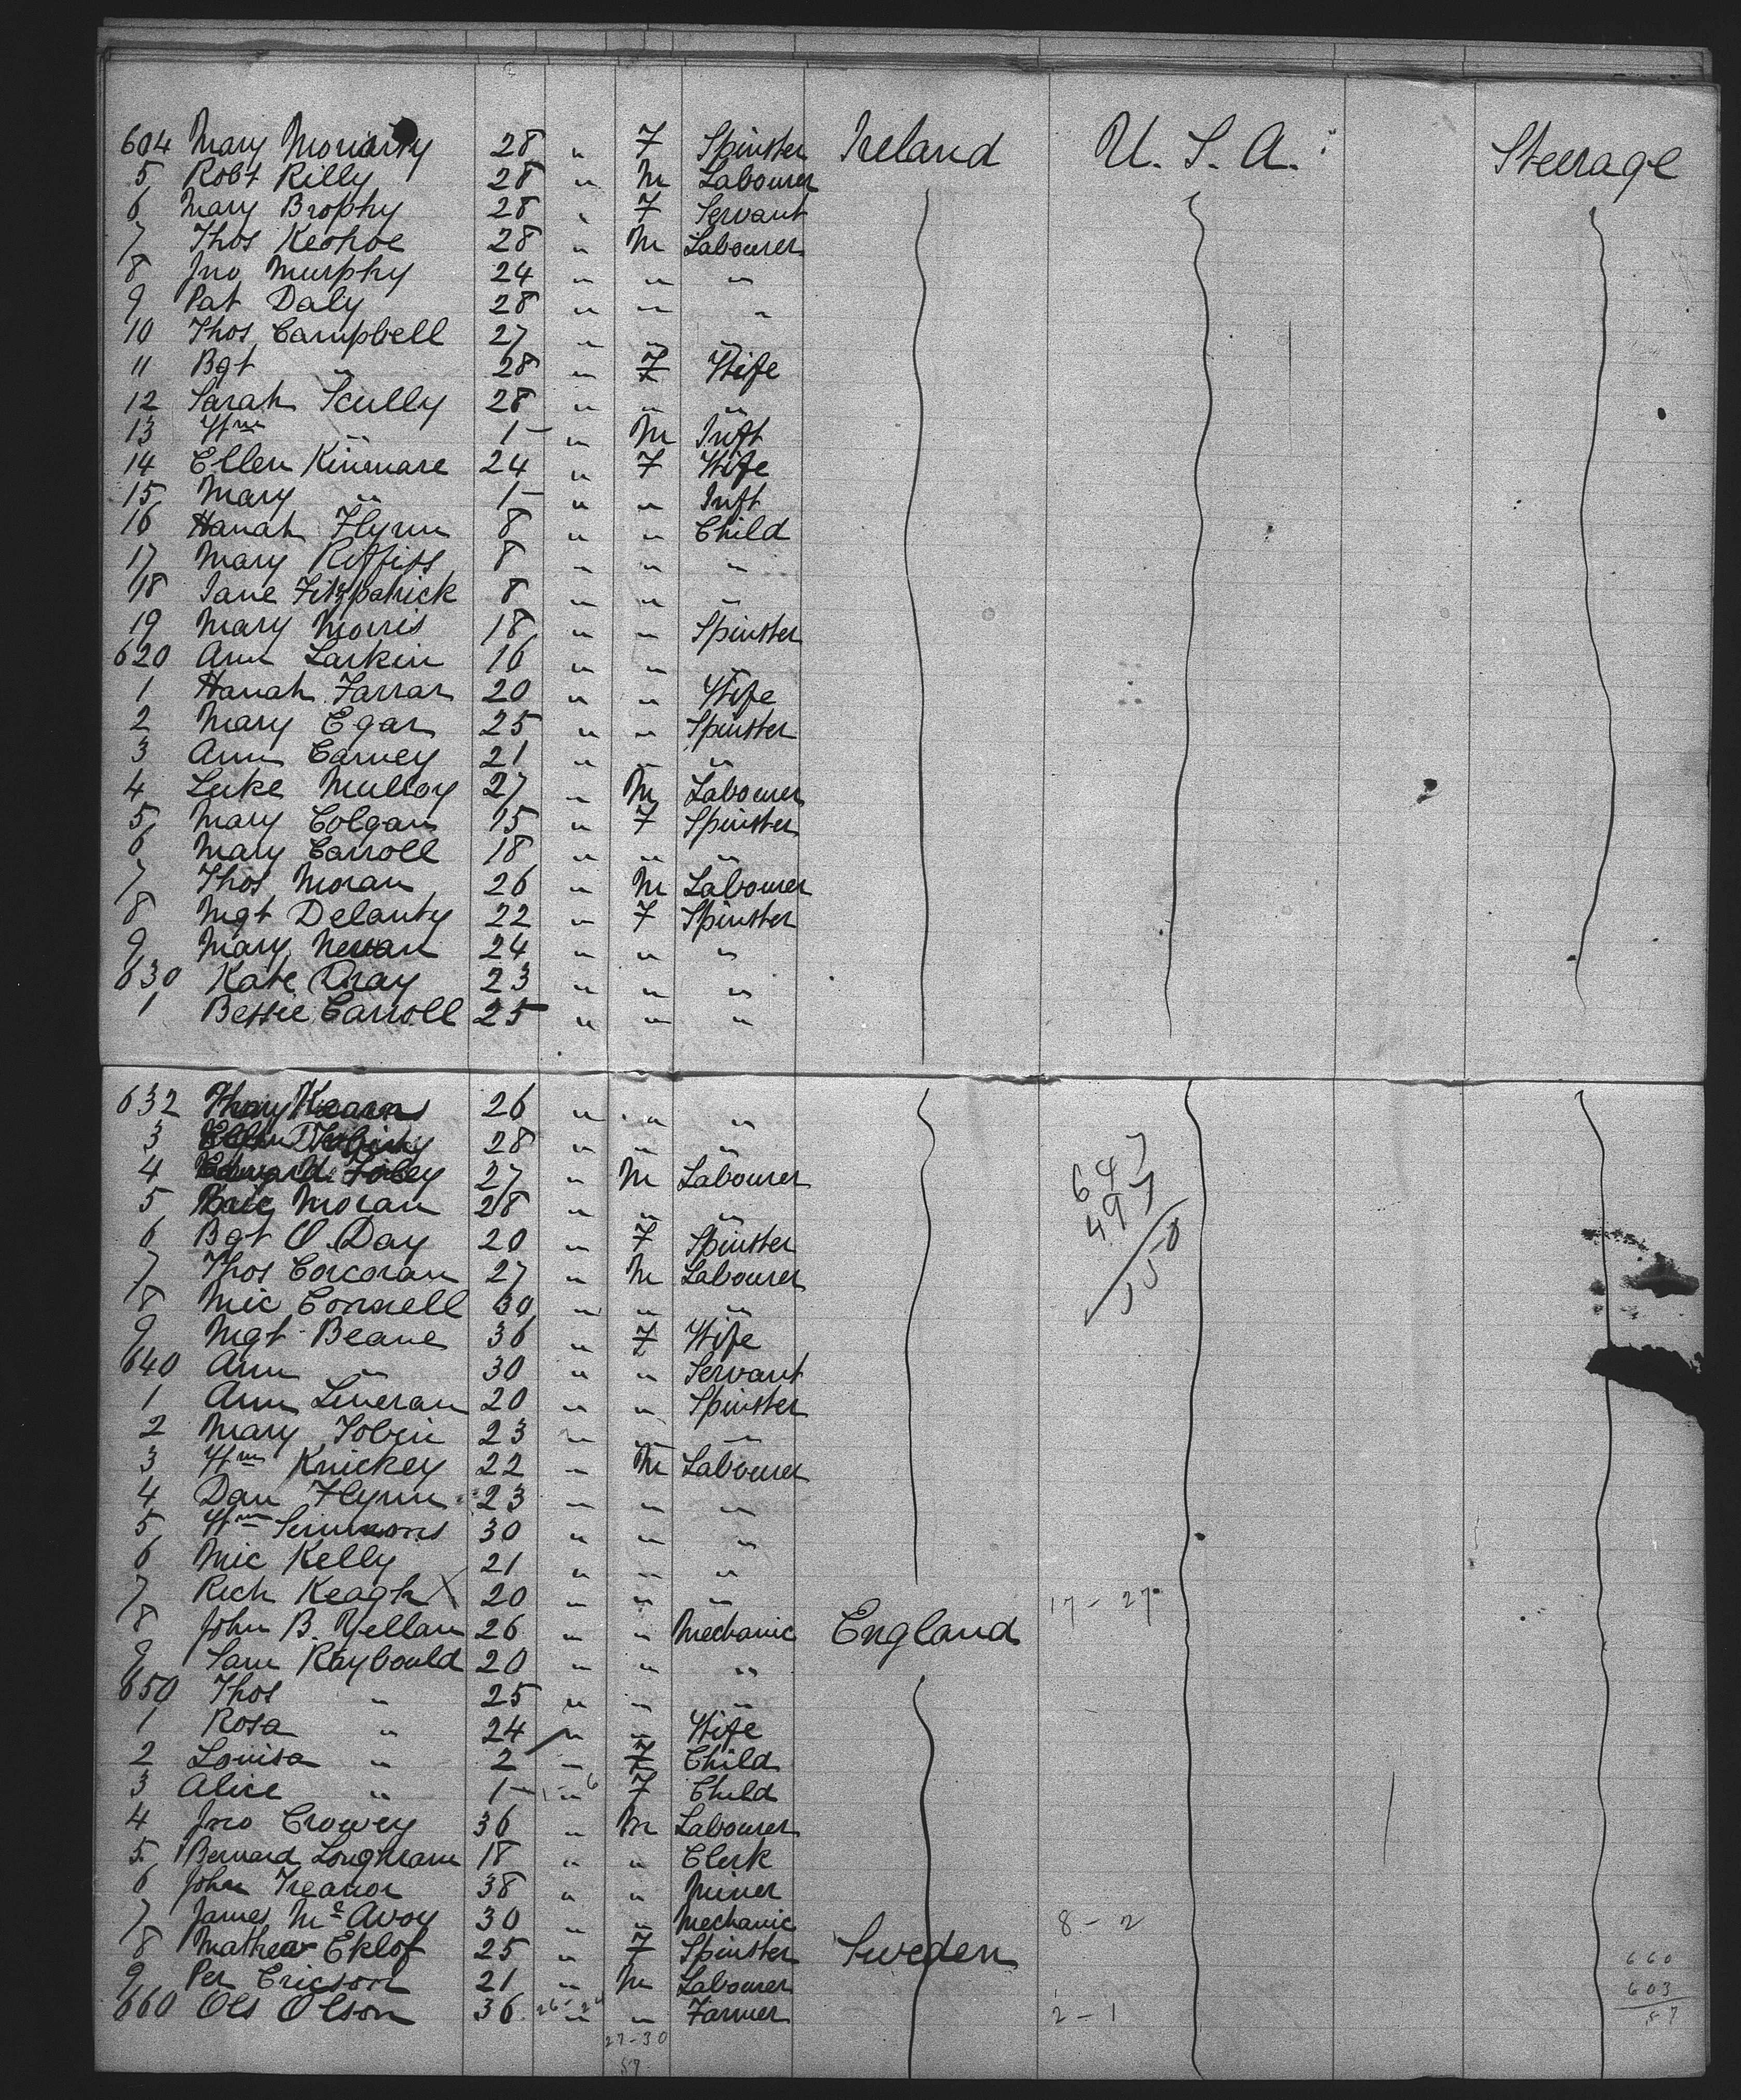 604 Mary Moriarty 28 " F Spinster Ireland U. S. A. Steerage
5 Robt Rilly 28 " M Labourer
6 Mary Brophy 28 " F Servant
7 Thos Keohoe 28 " M Labourer
8 Jno Murphy 24 " " "
9 Pat Daly 28 " " "
10 Thos Campbell 27 " " "
11 Bgt " 28 " F Wife
12 Sarah Scully 28 " " "
13 Wm " 1 " M Inft
14 Ellen Kinmare 24 " F Wife
15 Mary " 1 " " Inft
16 Hanah Flynn 8 " " Child
17 Mary 8 " " "
18 Jane Fitzpatrick 8 " " "
19 Mary Morris 18 " " Spinster
620 Ann Larkin 16 " " "
1 Hanah Farrar 20 " " Wife
2 Mary Egan 25 " " Spinster
3 Ann Carney 21 " " "
4 Luke Mulloy 27 " M Labourer
5 Mary Colgan 15 " F Spinster
6 Mary Carroll 18 " " "
7 Thos Moran 26 " M Labourer
8 Mgt Delanty 22 " F Spinster
9 Mary 24 " " "
630 Kate Dray 23 " " "
1 Bessie Carroll 25 " " "
632 Kearns 26 " " "
3 28 " " "
4 Edward Foley 27 " M Labourer
5 Moran 28 " " "
6 Bgt O. Day 20 " F Spinster
7 Thos Corcoran 27 " M Labourer
8 Mic Connell 30 " " "
9 Mgt Beane 36 " F Wife
640 Ann " 30 " " Servant
1 Ann Lineran 20 " " Spinster
2 Mary Tobin 23 " " "
3 Wm Knickey 22 " M Labourer
4 Dan Flynn 23 " " "
5 Wm Simmons 30 " " "
6 Mic Kelly 21 " " "
7 Rich Keagh X 20 " " " 17-27
8 John B. Yellan 26 " " Mechanic England
9 Sam Raybould 20 " " "
650 Thos " 25 " " "
1 Rosa " 24 " " Wife
2 Louisa " 2 " F Child
3 Alice " 1 " F Child
4 Jno Crowey 36 " M Labourer
5 Bernard Loughram 18 " " Clerk
6 John Treanor 38 " " Miner
7 James Mc Avoy 30 " " Mechanic 8-2
8 Mathea Eklof 25 " F Spinster Sweden
9 Per Ericson 21 " M Labourer
660 Ols Olson 36 " " Farmer 2-1
27-30
57
647
497
150
660
603
57